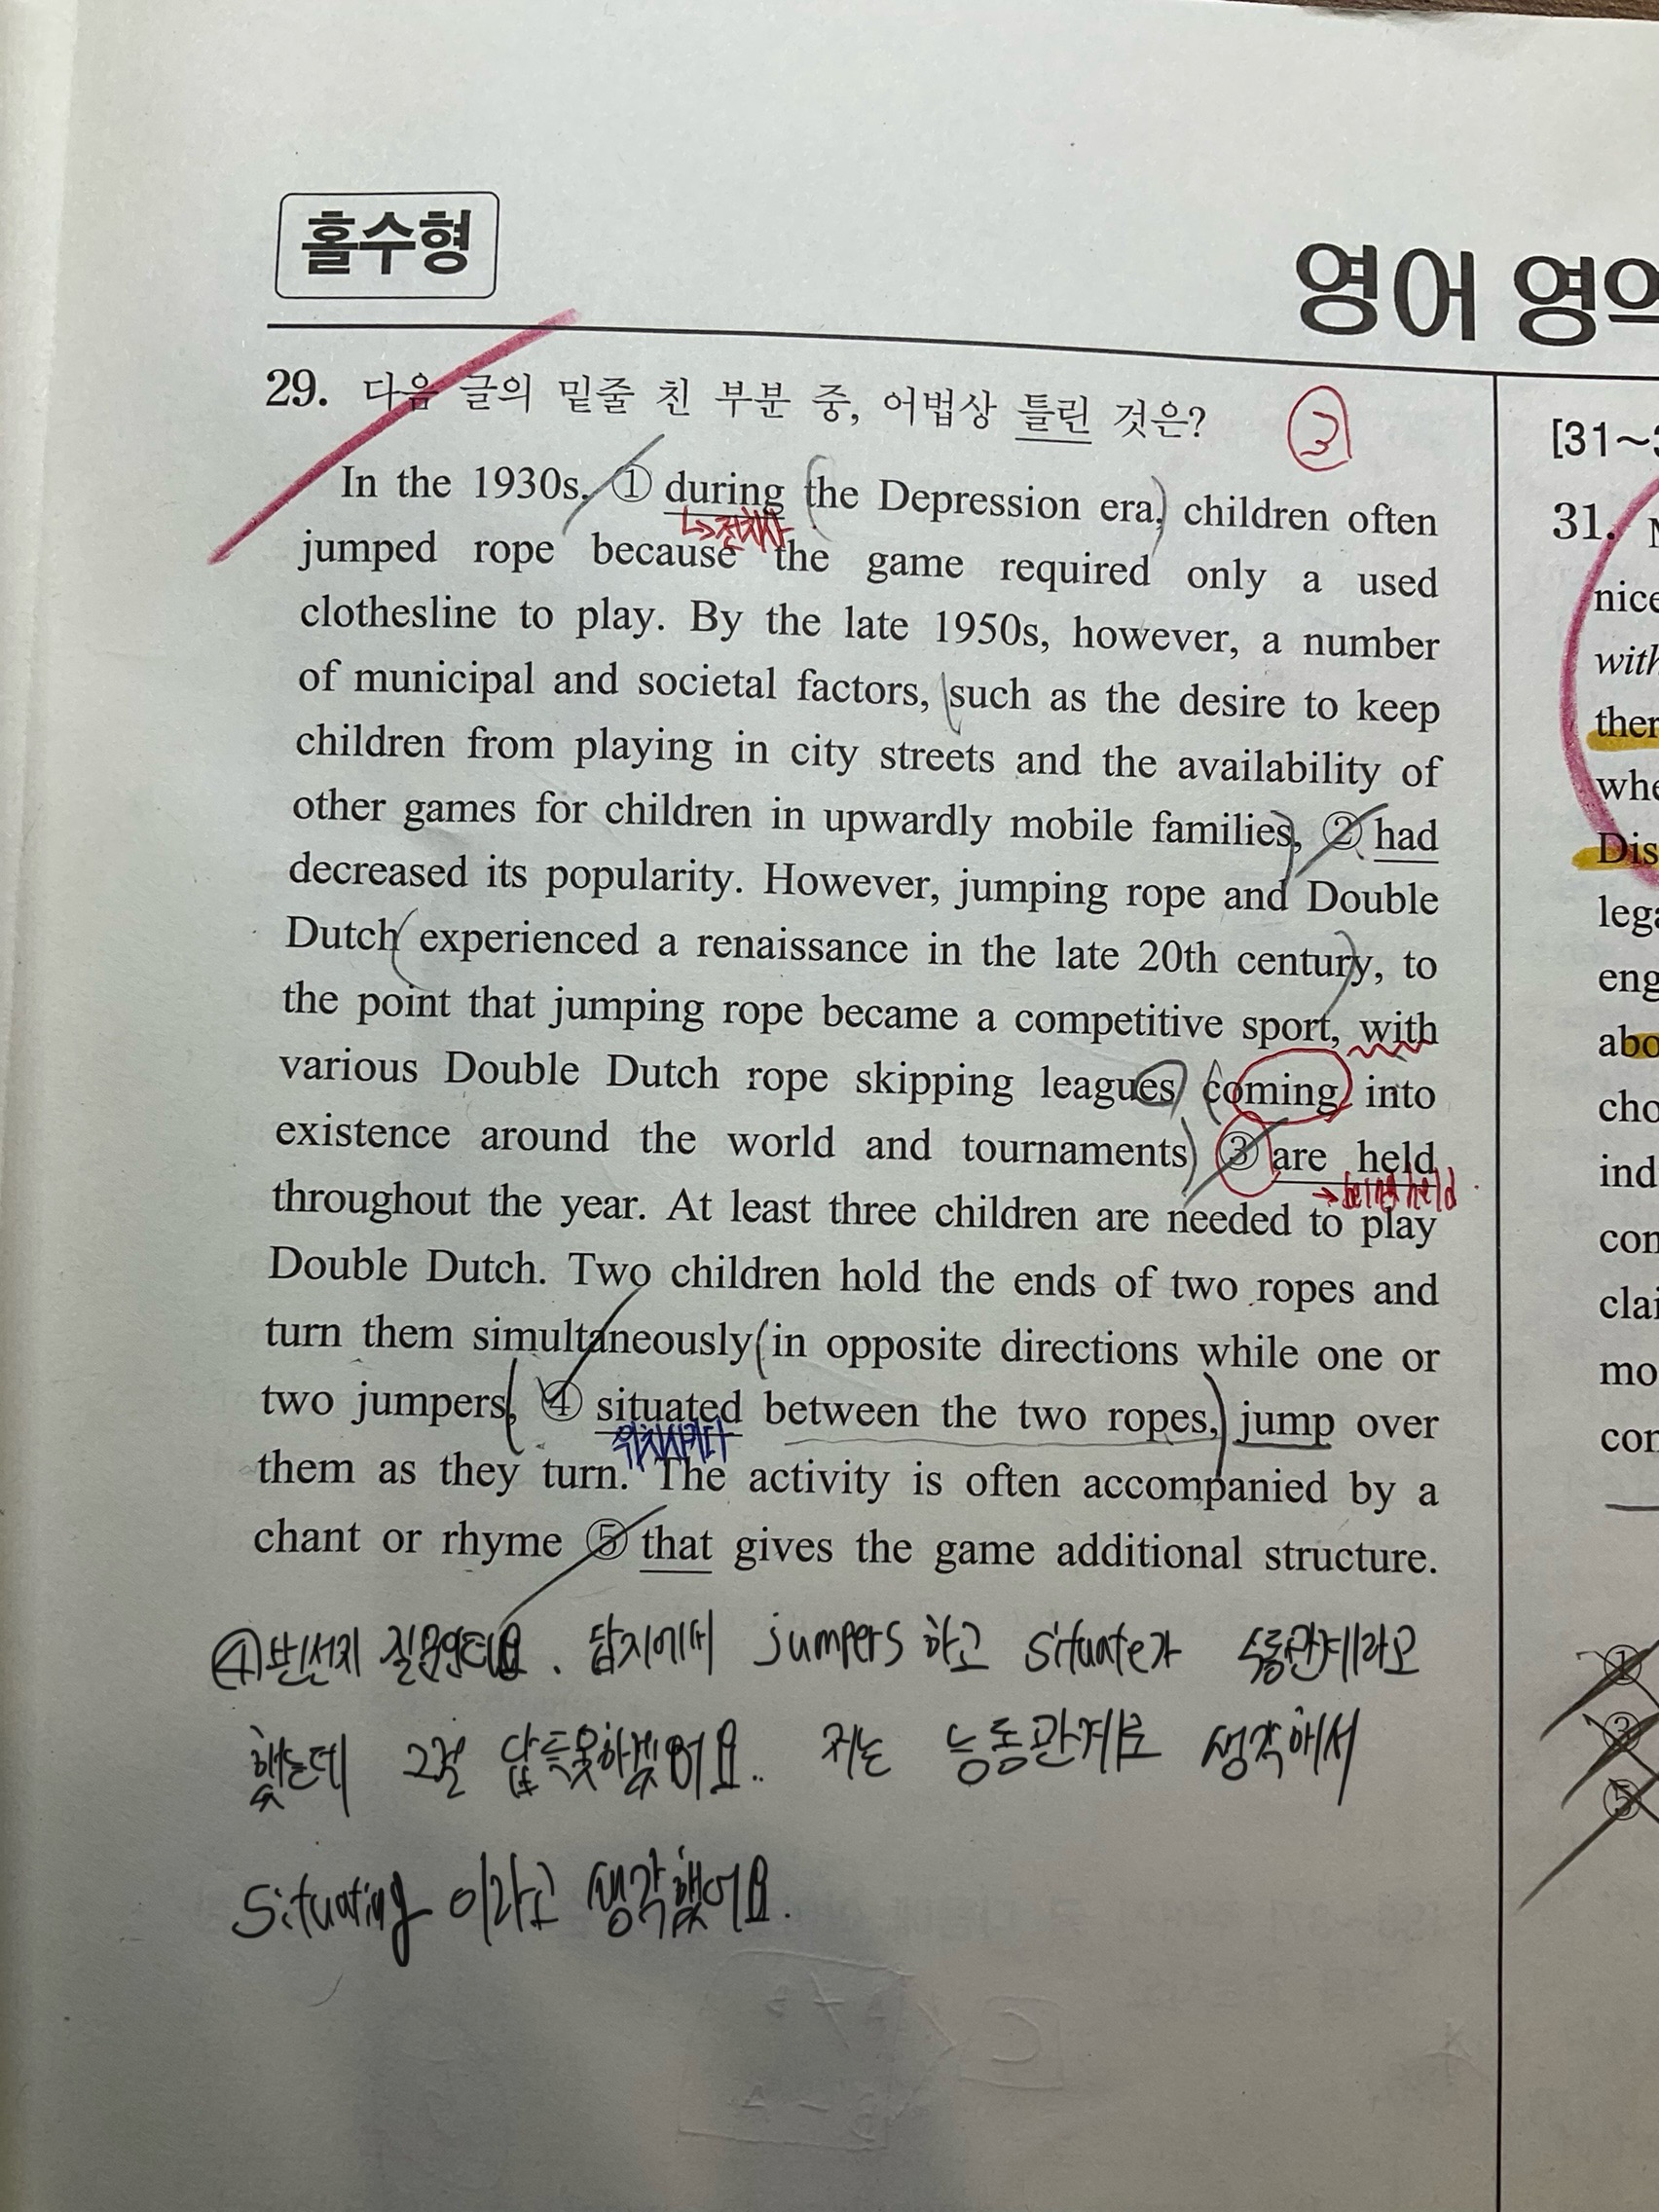 홀수형
영어 영역
29. 다음 글의 밑줄 친 부분 중, 어법상 틀린 것은?
③
In the 1930s, ① during the Depression era, children often
↳전치사
jumped rope because the game required only a used
clothesline to play. By the late 1950s, however, a number
of municipal and societal factors, such as the desire to keep
children from playing in city streets and the availability of
other games for children in upwardly mobile families, ② had
decreased its popularity. However, jumping rope and Double
Dutch experienced a renaissance in the late 20th century, to
the point that jumping rope became a competitive sport, with
various Double Dutch rope skipping leagues coming into
existence around the world and tournaments ③ are held
→ being held
throughout the year. At least three children are needed to play
Double Dutch. Two children hold the ends of two ropes and
turn them simultaneously in opposite directions while one or
two jumpers, ④ situated between the two ropes, jump over
위치시키다
them as they turn. The activity is often accompanied by a
chant or rhyme ⑤ that gives the game additional structure.
④번선지 질문인데요. 답지에떠 jumpers 하고 situate가 수동관계라고
했는데 그걸 납득못하겠어요.. 저는 능동관계로 생각해서
Situating 이라고 생각했어요.
[31～3
31.
nice
with
ther
whe
Dis
lega
eng
abo
cho
ind
con
clai
mo
con
①
③
⑤